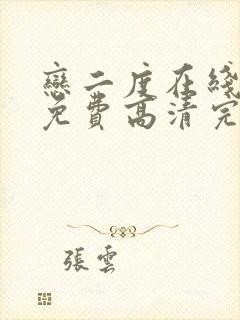 戀二度在綫
免費高清完
張雲